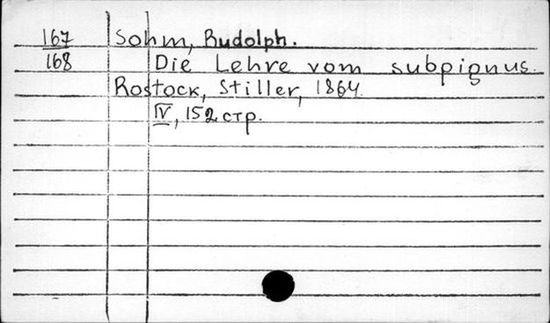 167 Sohm, Rudolph.
168 Die Lehre vom subpignus.
Rostock, Stiller, 1864.
IV, 152 стр.